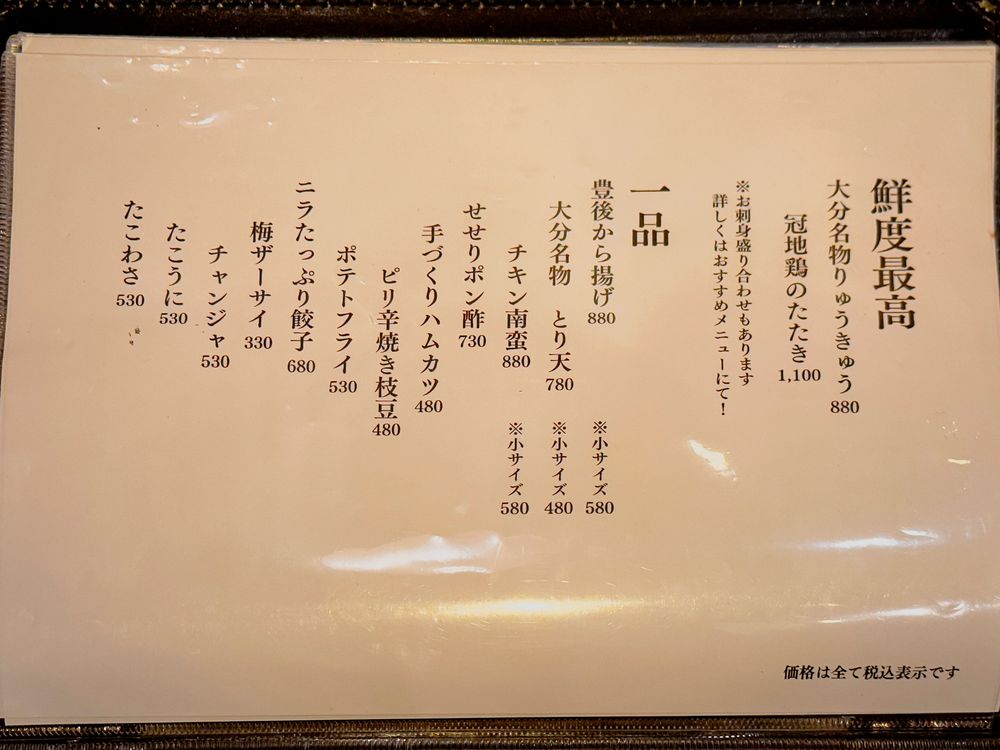 鮮度最高
大分名物りゅうきゅう 880
冠地鶏のたたき 1,100
※お刺身盛り合わせもあります
詳しくはおすすめメニューにて！
一品
豊後から揚げ 880 ※小サイズ 580
大分名物 とり天 780 ※小サイズ 480
チキン南蛮 880 ※小サイズ 580
せせりポン酢 730
手づくりハムカツ 480
ピリ辛焼き枝豆 480
ポテトフライ 530
ニラたっぷり餃子 680
梅ザーサイ 330
チャンジャ 530
たこうに 530
たこわさ 530
価格は全て税込表示です